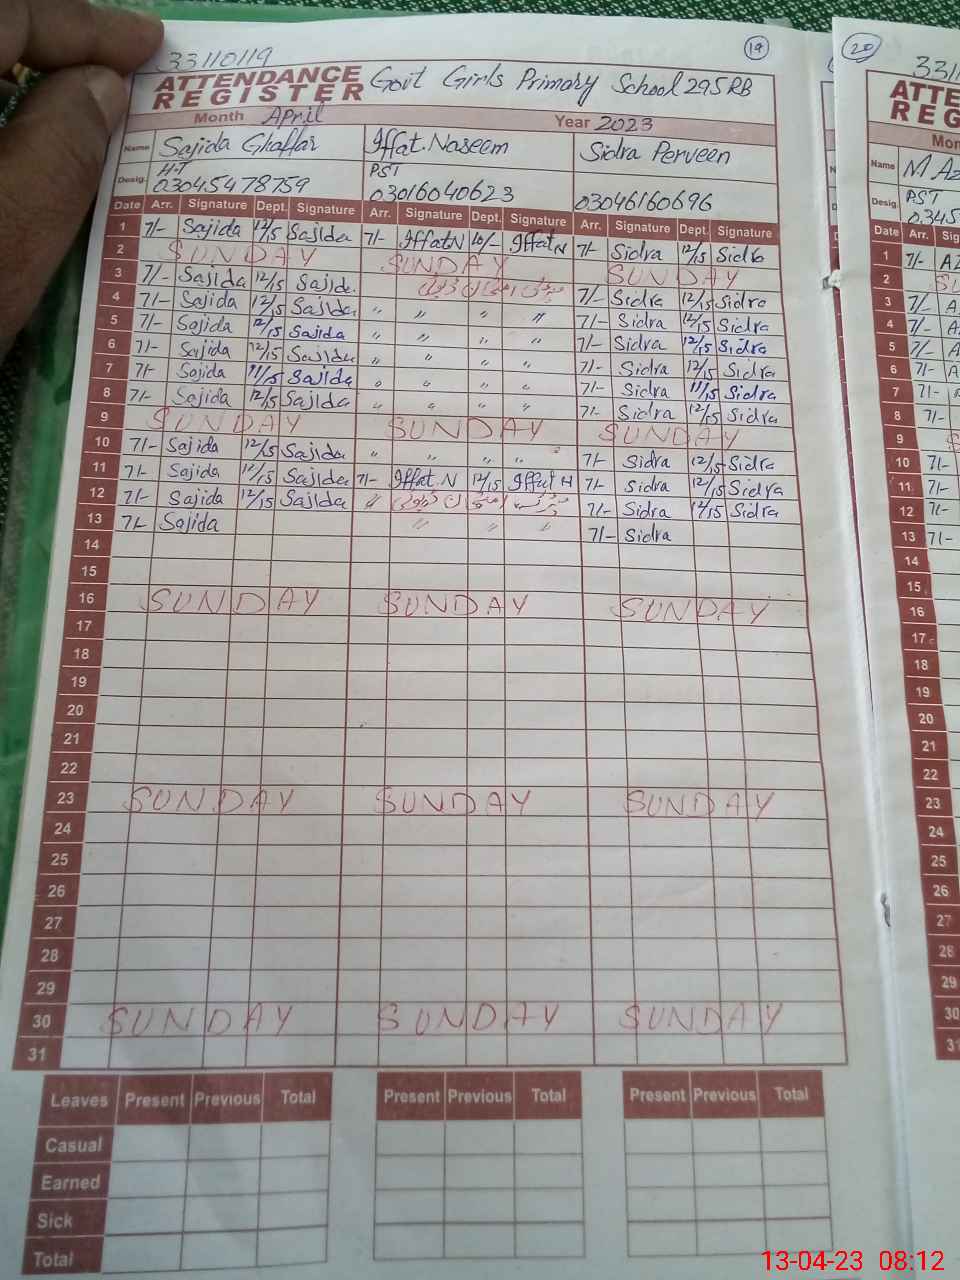 33110119 19
ATTENDANCE REGISTER Govt Girls Primary School 295RB
Month April Year 2023
Name Sajida Ghaffar Iffat.Naseem Sidra Perveen
Desig. HT PST
03045478759 03016040623 03046160696
Date Arr. Signature Dept. Signature Arr. Signature Dept. Signature Arr. Signature Dept. Signature
1 7/- Sajida 12/15 Sajida 7/- Iffat N 10/- Iffat N 7/- Sidra 12/15 Sidra
2 SUNDAY SUNDAY SUNDAY
3 7/- Sajida 12/15 Sajida 7/- Sidra 12/15 Sidra
4 7/- Sajida 12/15 Sajida " " " " 7/- Sidra 12/15 Sidra
5 7/- Sajida 12/15 Sajida " " " " 7/- Sidra 12/15 Sidra
6 7/- Sajida 12/15 Sajida " " " " 7/- Sidra 12/15 Sidra
7 7/- Sajida 11/15 Sajida " " " " 7/- Sidra 11/15 Sidra
8 7/- Sajida 12/15 Sajida " " " " 7/- Sidra 12/15 Sidra
9 SUNDAY SUNDAY SUNDAY
10 7/- Sajida 12/15 Sajida " " " " 7/- Sidra 12/15 Sidra
11 7/- Sajida 12/15 Sajida 7/- Iffat.N 12/15 Iffat N 7/- Sidra 12/15 Sidra
12 7/- Sajida 12/15 Sajida " 7/- Sidra 12/15 Sidra
13 7/- Sajida " " " 7/- Sidra
14
15
16 SUNDAY SUNDAY SUNDAY
17
18
19
20
21
22
23 SUNDAY SUNDAY SUNDAY
24
25
26
27
28
29
30 SUNDAY SUNDAY SUNDAY
31
Leaves Present Previous Total Present Previous Total Present Previous Total
Casual
Earned
Sick
Total
20 331
ATTE
REG
Mon
Name M Az
Desig. PST
0345
Date Arr. Sig
1 7/- Az
2 SU
3 7/- A
4 7/- A
5 7/- A
6 7/- A
7 7/-
8 7/-
9 S
10 7/-
11 7/-
12 7/-
13 7/-
14
15
16
17
18
19
20
21
22
23
24
25
26
27
28
29
30
31
13-04-23 08:12